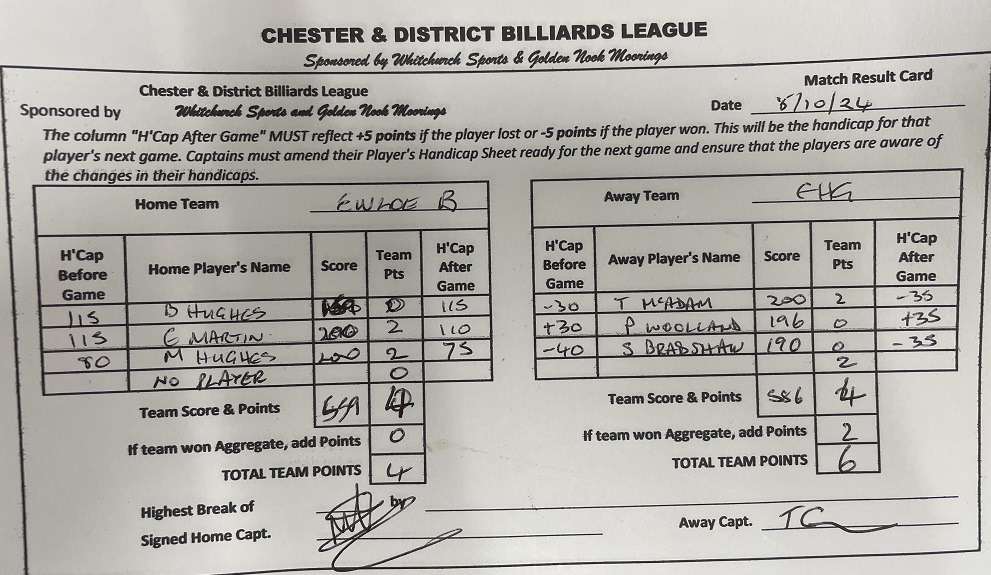 CHESTER & DISTRICT BILLIARDS LEAGUE
Sponsored by Whitchurch Sports & Golden Nook Moorings
Chester & District Billiards League
Match Result Card
Sponsored by Whitchurch Sports and Golden Nook Moorings
Date 8/10/24
The column "H'Cap After Game" MUST reflect +5 points if the player lost or -5 points if the player won. This will be the handicap for that
player's next game. Captains must amend their Player's Handicap Sheet ready for the next game and ensure that the players are aware of
the changes in their handicaps.
Home Team EWLOE B
H'Cap Before Game Home Player's Name Score Team Pts H'Cap After Game
115 B HUGHES 0 115
115 E MARTIN 200 2 110
80 M HUGHES 200 2 75
NO PLAYER 0
Team Score & Points 4
If team won Aggregate, add Points 0
TOTAL TEAM POINTS 4
Away Team EHG
H'Cap Before Game Away Player's Name Score Team Pts H'Cap After Game
-30 T McADAM 200 2 -35
+30 P WOOLLAND 196 0 +35
-40 S BRADSHAW 190 0 -35
2
Team Score & Points 586 4
If team won Aggregate, add Points 2
TOTAL TEAM POINTS 6
Highest Break of by
Signed Home Capt.
Away Capt.